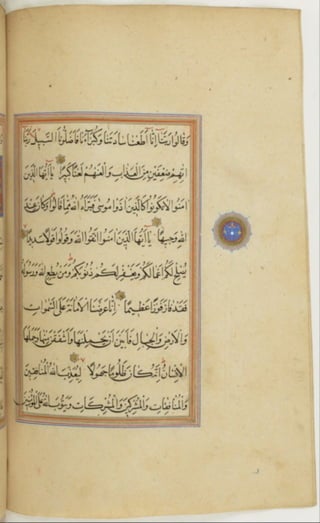 وقالوا ربنا إنا أطعنا سادتنا وكبراءنا فأضلونا السبيلا ربنا
اتهم ضعفين من العذاب والعنهم لعنا كبيرا يا أيها الذين
امنوا لا تكونوا كالذين اذوا موسى فبرأه الله مما قالوا وكان عند
الله وجيها يا أيها الذين امنوا اتقوا الله وقولوا قولا سديدا
يصلح لكم أعمالكم ويغفر لكم ذنوبكم ومن يطع الله ورسوله
فقد فاز فوزا عظيما إنا عرضنا الأمانة على السموات
والأرض والجبال فأبين أن يحملنها وأشفقن منها وحملها
الإنسان إنه كان ظلوما جهولا ليعذب الله المنافقين
والمنافقات والمشركين والمشركات ويتوب الله على المؤمنين